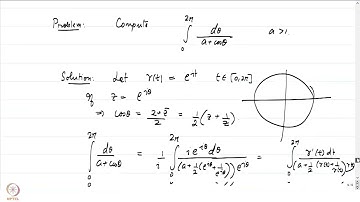 Problem: Compute ∫₀^{2π} dθ/(a+cosθ) a>1.
Solution: Let γ(t) = e^{it} t∈[0,2π]
If z = e^{iθ}
⇒ cosθ = (z+z̄)/2 = 1/2 (z + 1/z)
∫₀^{2π} dθ/(a+cosθ) = 1/i ∫₀^{2π} i e^{iθ} dθ/((a+1/2(e^{iθ}+1/e^{iθ})) e^{iθ}) = ∫₀^{2π} γ'(t) dt/((a+1/2(γ(t)+1/γ(t)))
NPTEL